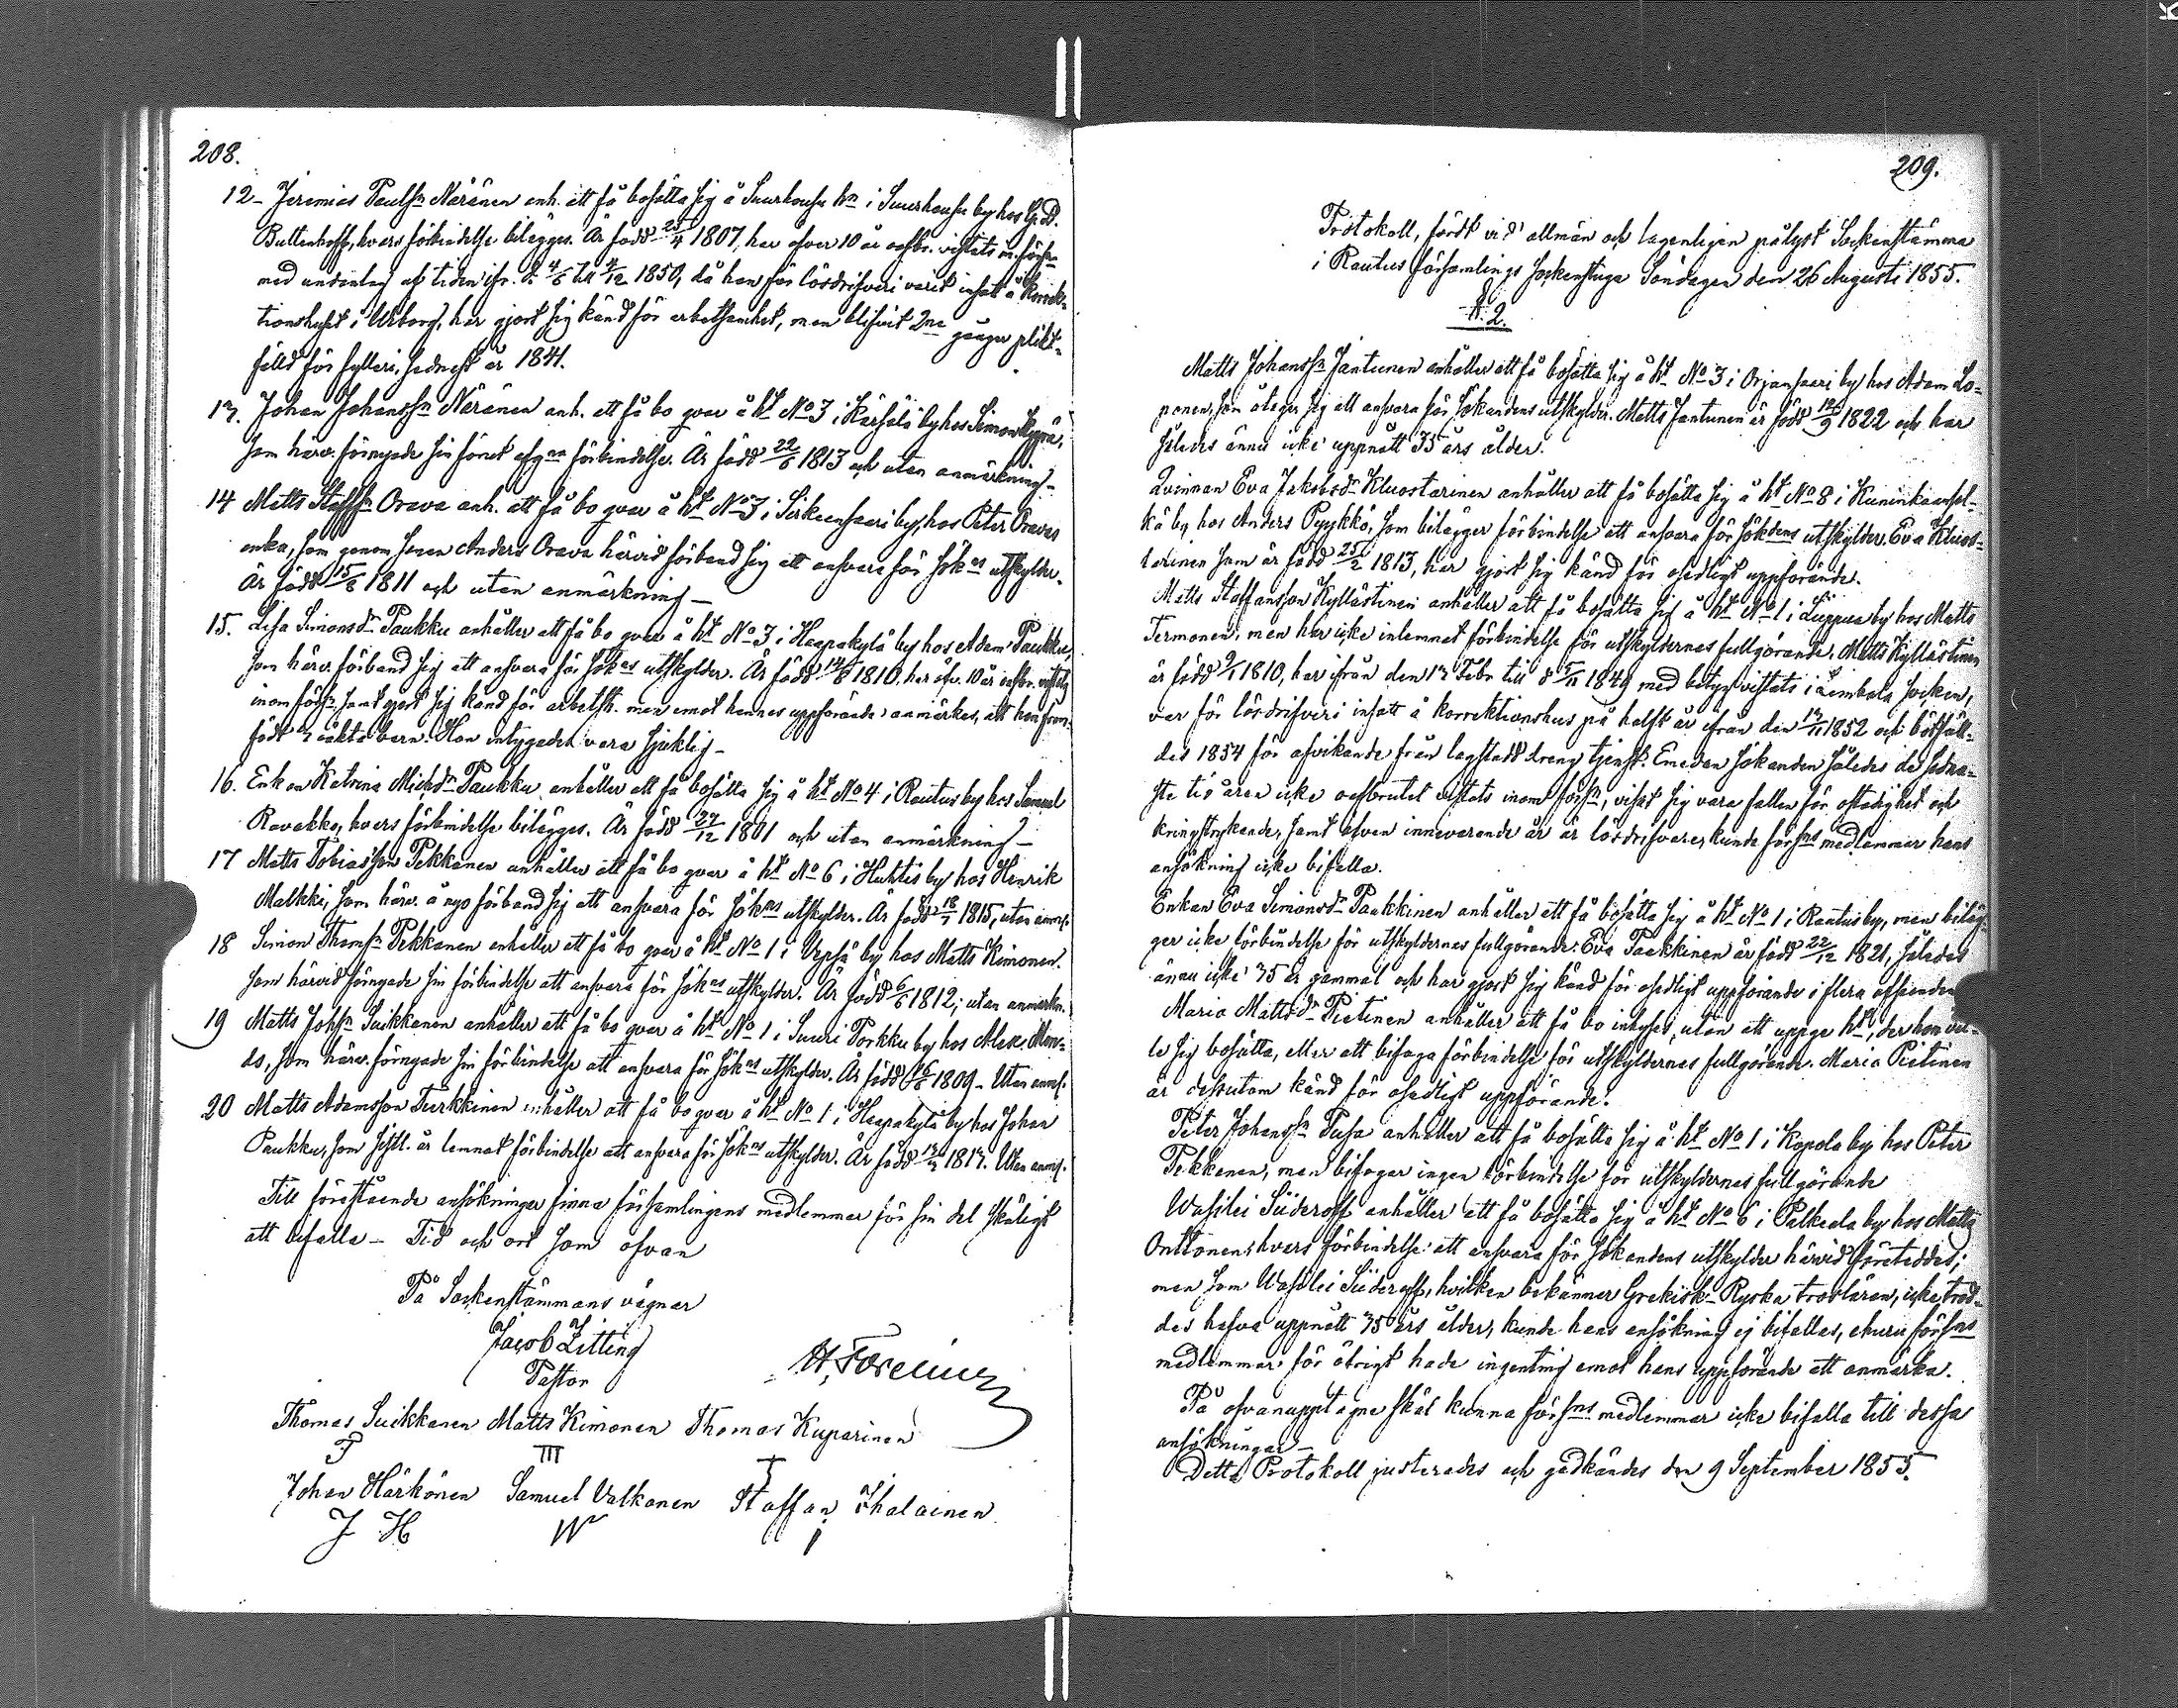 208.
12- Jeremias Paulssn Näränen anh. att få bosätta sig å Suurhousu hn i Suurhousu by hos G:d.
Buttenhoff, hvars förbindelse bilägges. Är född 25/4 1807, har öfver 10 år oafbr. vistats in. förs:n
med undantag af tiden ifr. d. 4/6 till 4/12 1850, då han för lösdrifveri varit insatt å Korrek-
tionshuset i Wiborg, har gjort sig känd för arbetsamhet, men blifvit 2ne gånger plikt-
fälld för fylleri, sednast år 1841.
13. Johan Johanssn Näränen anh. att få bo qvar å ht No 3 i Kärsälä by hos Simon
som härv. förnyade sin förut afgna förbindelse. Är född 22/6 1813 och utan anmärkning-
14 Matts Staffsn Orava anh. att få bo qvar å ht No 3 i Sirkiensaari by, hos Peter Oravas
enka, som genom sonen Anders Orava härvid förband sig att ansvara för sökns utskylder.
Är född 15/6 1811 och utan anmärkning-
15. Lisa Simonsdr Paukku anhåller att få bo qvar å ht No 3 i Haapakylä by hos Adam Paukku,
som härv. förband sig att ansvara för sökns utskylder. Är född 1810, har öfv. 10 år oafbr. vistats
inom förs:n samt gjort sig känd för arbetsh. men emot hennes uppförande anmärkes, att hon fram-
födt 3 oäkta barn. Hon intygades vara sjuklig-
16. Enkan Katrina Michdr Paukku anhåller att få bosätta sig å ht No 4 i Rautus by hos Samuel
Ravakko, hvars förbindelse bilägges. Är född 27/12 1801 och utan anmärkning-
17 Matts Tobiasson Pekkanen anhåller att få bo qvar å ht No 6 i Huhtis by hos Henrik
Malkki, som härv. å nyo förband sig att ansvara för sökns utskylder. Är född 18/7 1815, utan anmk.
18 Simon Thomsn Pekkanen anhåller att få bo qvar å ht No 1 i by hos Matts Kimonen.
som härvid förnyade sin förbindelse att ansvara för sökns utskylder. Är född 6/6 1812; utan anmärkn.
19 Matts Johsn Suikkanen anhåller att få bo qvar å ht No 1 i Suuri Porkku by hos Alex.
som härv. förnyade sin förbindelse att ansvara för sökns utskylder. Är född 1809- Utan anmk.
20 Matts Adamsson Turkkinen anhåller att få bo qvar å ht No 1 i Haapakylä by hos Johan
Paukku, som sistl. år lemnat förbindelse att ansvara för sökns utskylder. Är född 1813. Utan anmk.
Till förestående ansökningar finna församlingens medlemmar för sin del skäligt
att bifalla- Tid och ort som ofvan
På Sockenstämmans vägnar
Jacob Zitting
Pastor
Thomas Suikkanen Matts Kimonen Thomas Kuparinen
III
Johan Härkönen Samuel Valkonen Staffan Ihalainen
J H W
209.
Protokoll, fördt vid allmän och lagenligen pålyst Sockenstämma
i Rautus församlings sockenstuga Söndagen den 26 Augusti 1855.
§. 2.
Matts Johanssn Jantunen anhåller att få bosätta sig å ht No 3 i Orjansaari by hos Adam Lo-
ponen, som åtager sig att ansvara för sökandens utskylder. Matts Jantunen är född 12/9 1822 och har
således ännu icke uppnått 35 års ålder.
Qvinnan Eva Jakobsdr Kluostarinen anhåller att få bosätta sig å ht No 8 i Kuninkaansel-
kä by hos Anders Pyykkö, som bilägger förbindelse att ansvara för sökdens utskylder. Eva Kluos-
tarinen som är född 25/2 1813, har gjort sig känd för osedligt uppförande.
Matts Staffansson Kyllästinen anhåller att få bosätta sig å ht No 1 i Liippua by hos Matts
Termonen, men har icke inlemnat förbindelse för utskyldernas fullgörande. Matts Kyllästinen
är född 9/1 1810, har ifrån den 13 Febr till d 5/11 1849 med betyg vistats i Lembala socken,
var för lösdrifveri insatt å korrektionshus på halft år ifrån den 13/11 1852 och bötfäll-
des 1854 för afvikande från lagstadd drengtjenst. Emedan sökanden således de sedna-
ste tio åren icke oafbrutet vistats inom förs:n, visat sig vara fallen för ostadighet och
kringstrykande, samt äfven innevarande år är lösdrifvare, kunde förs:ns medlemmar hans
ansökning icke bifalla.
Enkan Eva Simonsdr Paukkinen anhåller att få bosätta sig å ht No 1 i Rautus by, men biläg-
ger icke förbindelse för utskyldernas fullgörande. Eva Paukkinen är född 22/12 1821, således
ännu icke 35 år gammal och har gjort sig känd för osedligt uppförande i flera afseenden
Maria Mattsdr Pietinen anhåller att få bo inhyses, utan att uppge ht, der hon vil-
le sig bosätta, eller att bifoga förbindelse för utskyldernas fullgörande. Maria Pietinen
är dessutom känd för osedligt uppförande.
Peter Johanssn Pusa anhåller att få bosätta sig å ht No 1 i Kopola by hos Peter
Pekkanen, men bifogar ingen förbindelse för utskyldernas fullgörande
Wasilei Süderoff anhåller att få bosätta sig å ht No 6 i Palkeala by hos Matts
Onttonen, hvars förbindelse att ansvara för sökandens utskylder härvid företeddes;
men som Wasilei Süderoff, hvilken bekänner Grekisk-Ryska trosläran, icke trod-
des hafva uppnått 35 års ålder, kunde hans ansökning ej bifallas, ehuru förs:ns
medlemmar för öfrigt hade ingenting emot hans uppförande att anmärka.
På ofvanupptagne skäl kunna förs:ns medlemmar icke bifalla till dessa
ansökningar-
Detta Protokoll justerades och godkändes den 9 September 1855.